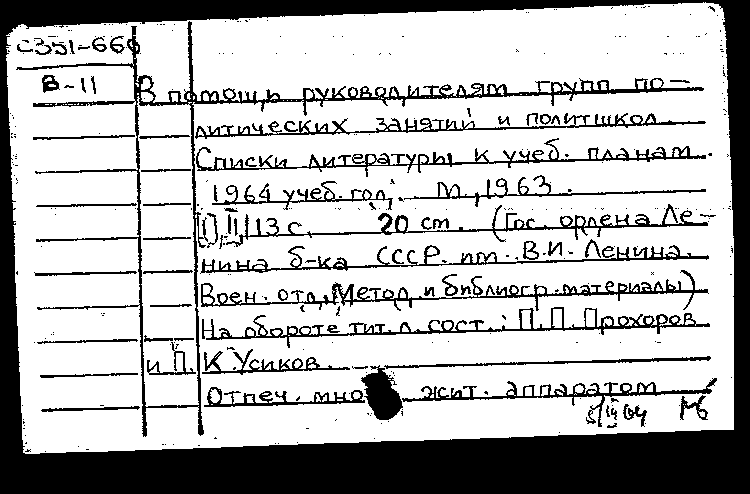 С351-660
В-11
В помощь руководителям групп по-
литических занятий и политшкол.
Списки литературы к учеб. планам.
1964 учеб. год. М., 1963.
[I], II, 113 с. 20 cm. (Гос. ордена Ле-
нина б-ка СССР им. В.И. Ленина.
Воен. отд. Метод. и библиогр. материалы)
На обороте тит. л. сост.: П.П. Прохоров
и П.К. Усиков.
Отпеч. множит. аппаратом